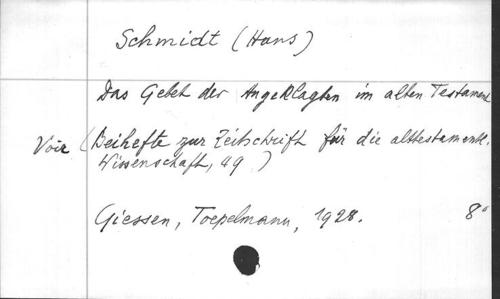 Schmidt (Hans)
Das Gebet der Angeklagten im alten Testament
Voir (Beihefte zur Zeitschrift für die alttestamentl.
Wissenschaft, 49)
Giessen, Toepelmann, 1928. 8°